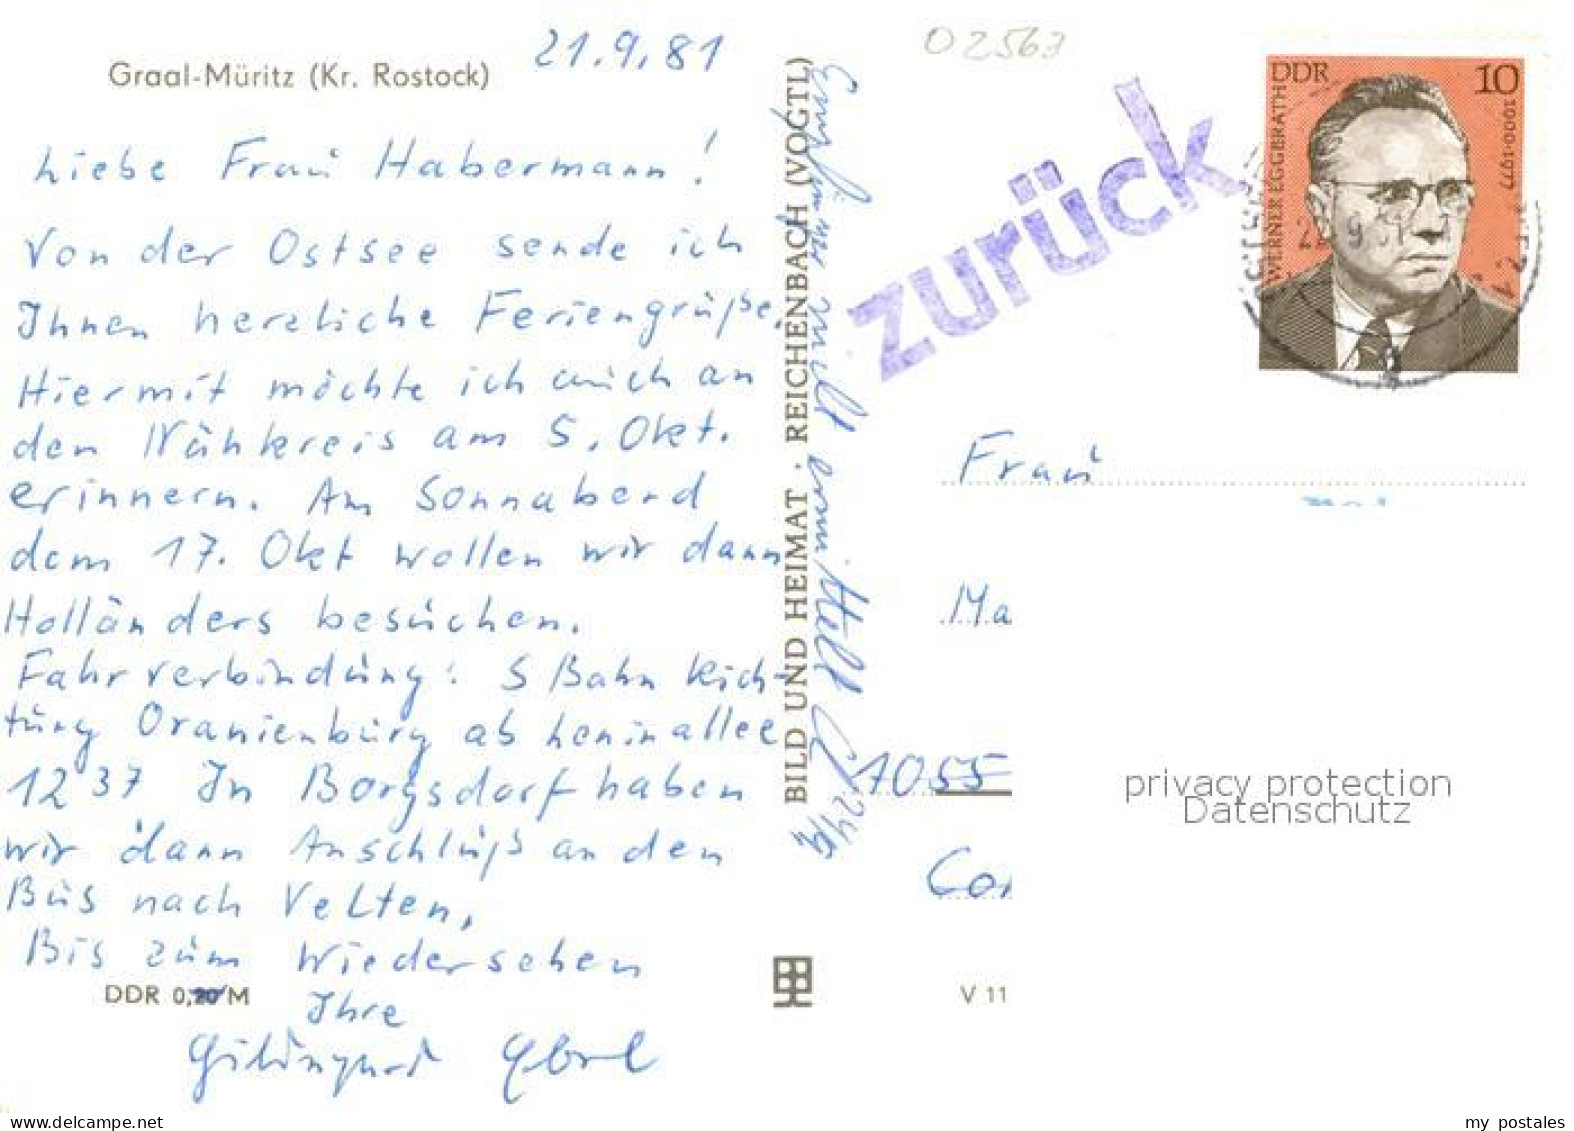 21.9.81
Graal-Müritz (Kr. Rostock)
Liebe Frau Habermann!
Von der Ostsee sende ich
Ihnen herzliche Feriengrüße.
Hiermit möchte ich auch an
den Nähkreis am 5. Okt.
erinnern. Am Sonnabend
dem 17. Okt wollen wir dann
Holländers besuchen.
Fahrverbindung: S Bahn Rich-
tung Oranienburg ab Leninallee
12 37 In Borgsdorf haben
wir dann Anschluß an den
Bus nach Velten.
Bis zum Wiedersehen
Ihre
DDR 0,20 M
BILD UND HEIMAT · REICHENBACH (VOGTL)
Empfänger nicht ermittelt
24/9
02563
zurück
DDR 10
WERNER EGGERATH
1900-1977
Frau
Ma
1055
Co
V 11
privacy protection
Datenschutz
www.delcampe.net
my_postales